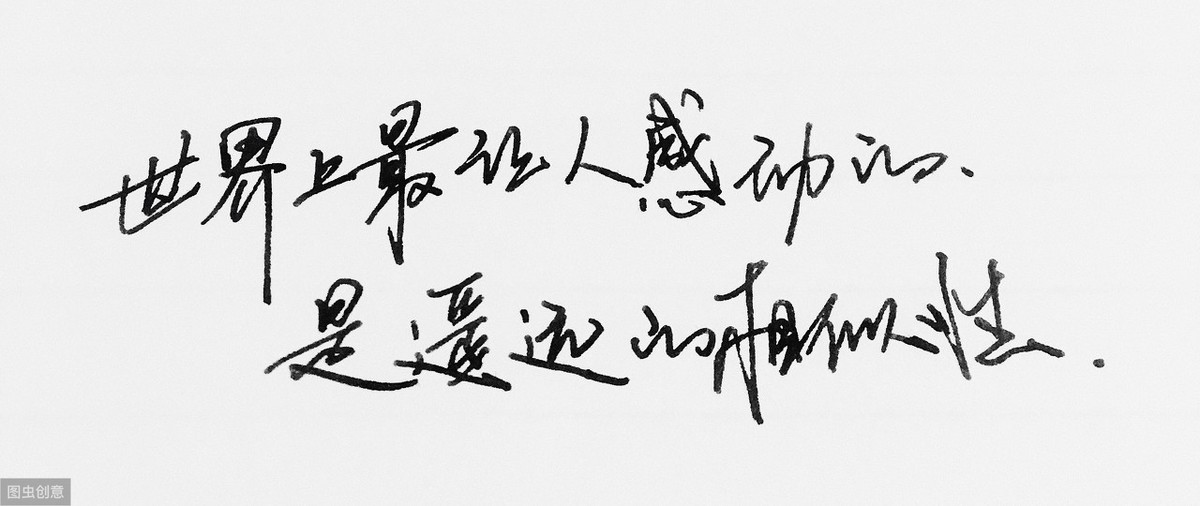 世界上最让人感动的、
是遥远的相似性.
图虫创意